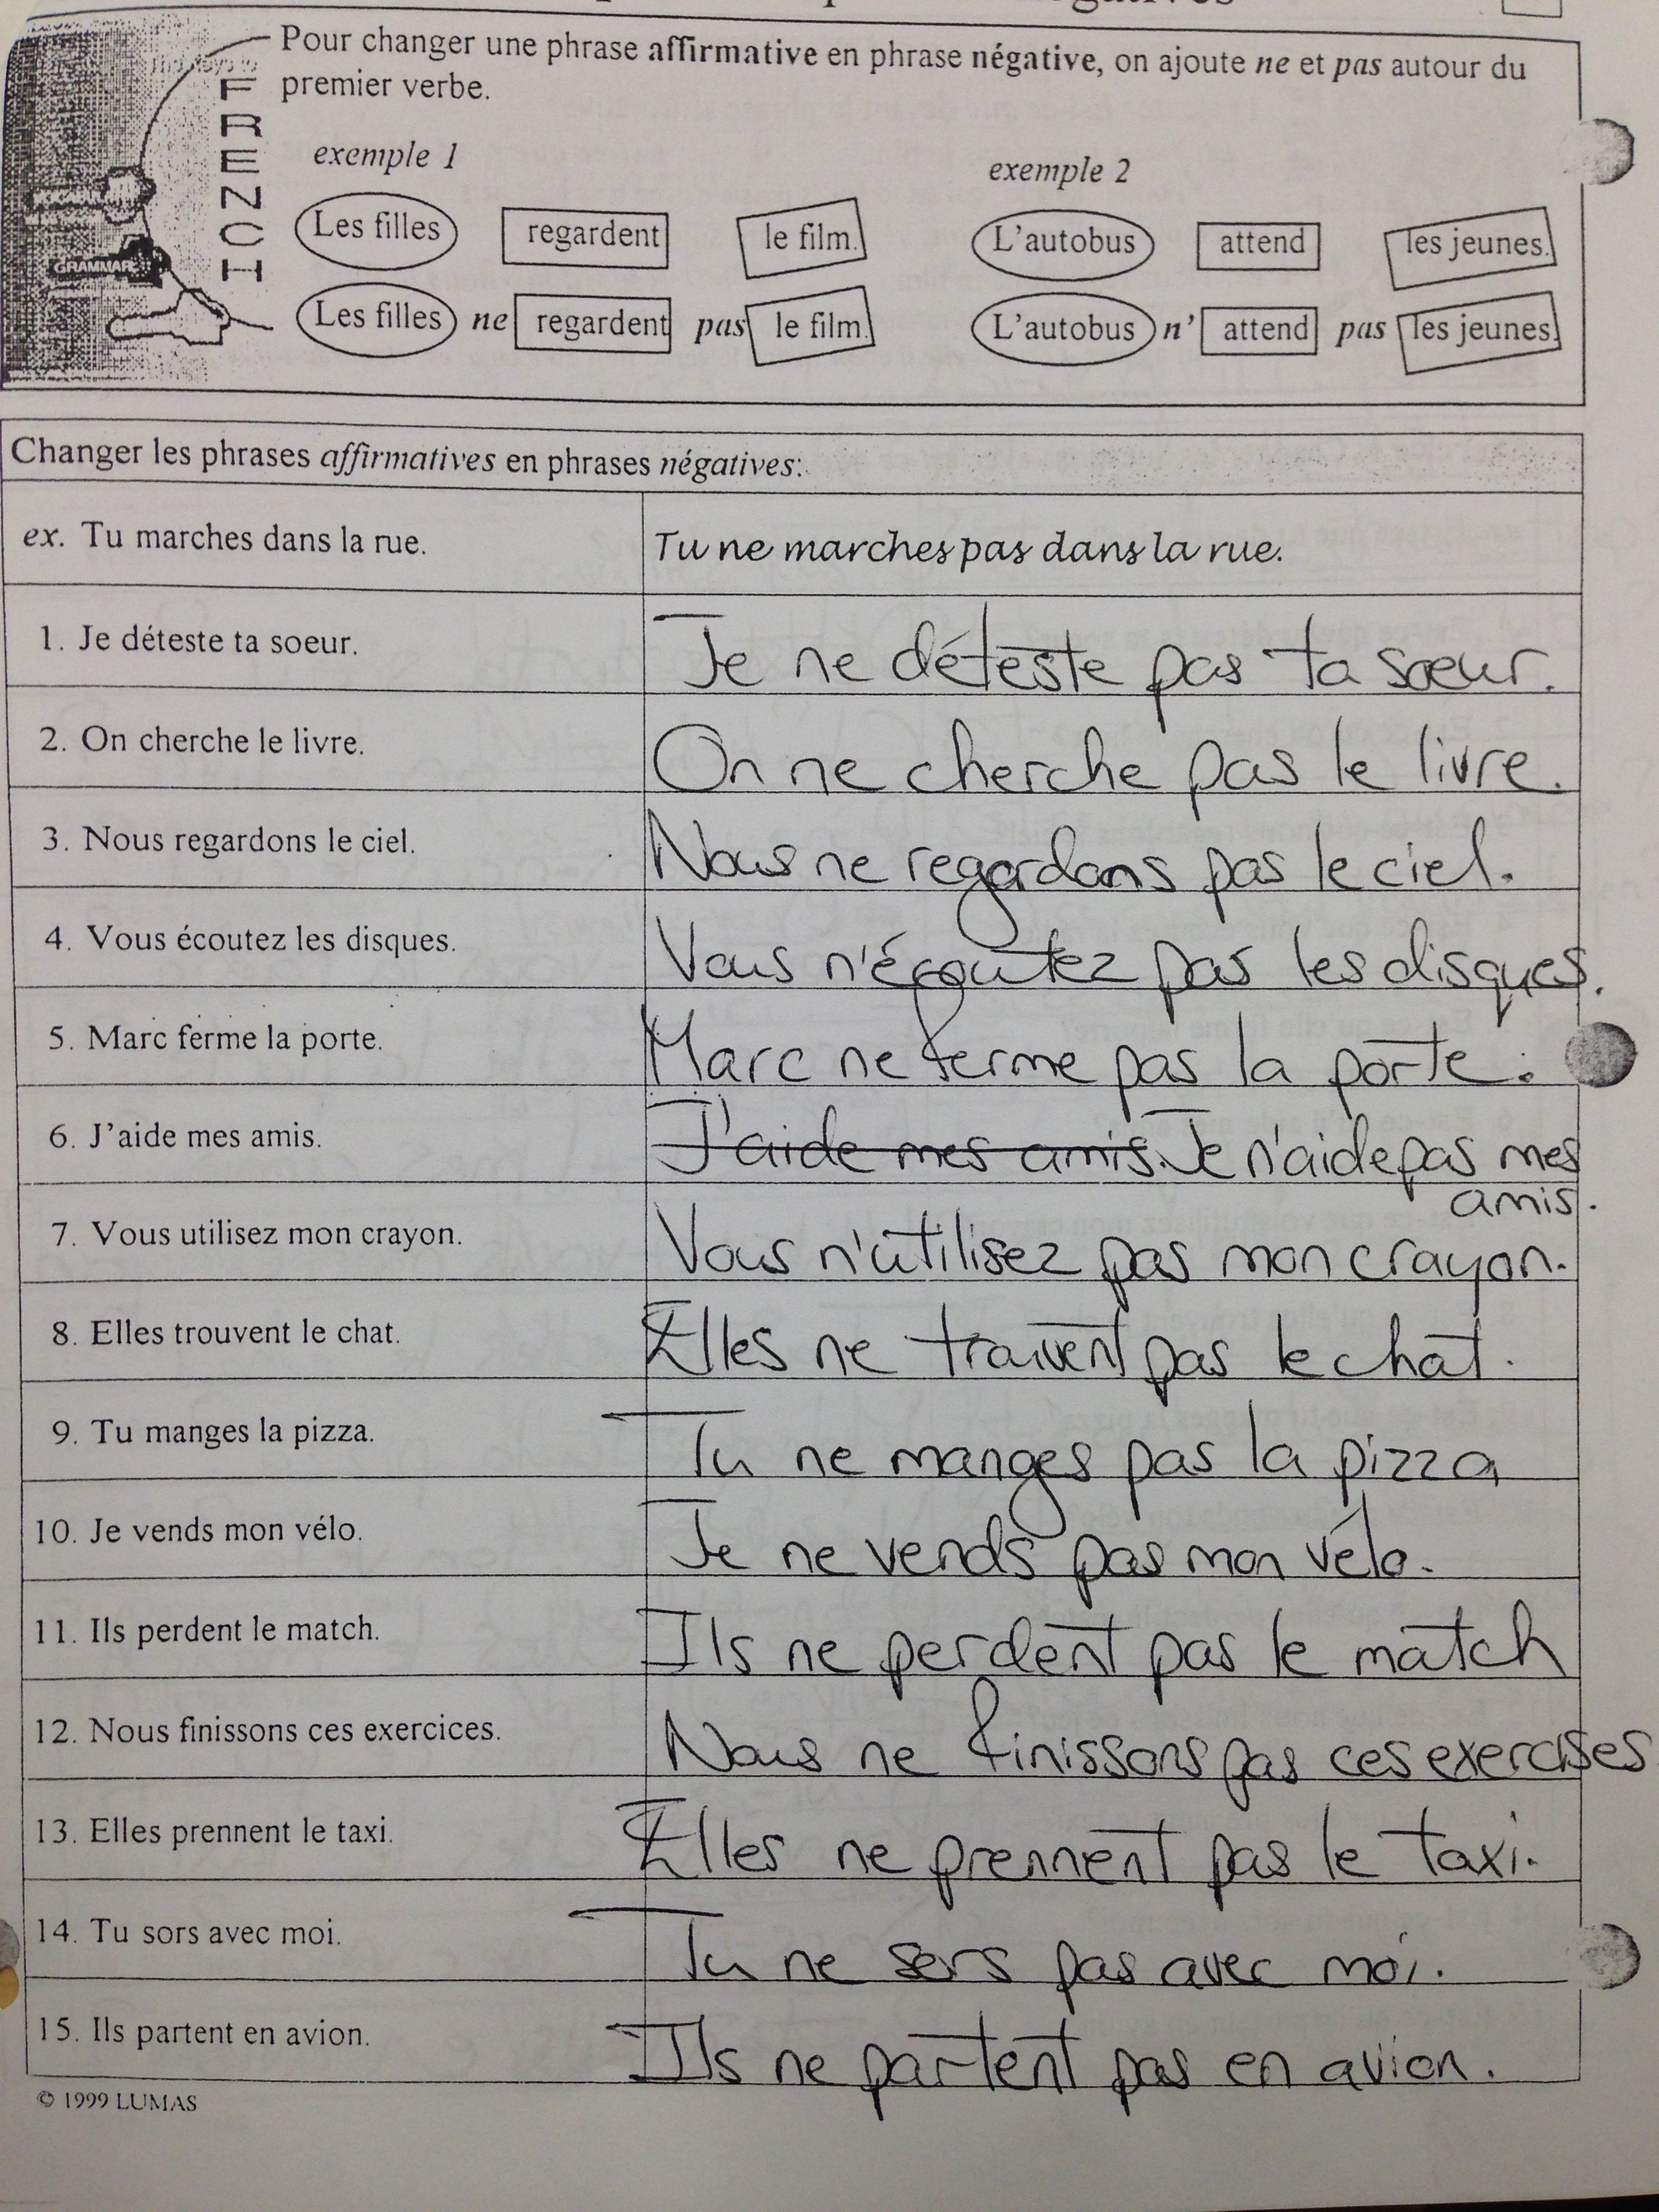 Pour changer une phrase affirmative en phrase négative, on ajoute ne et pas autour du
premier verbe.
FRENCH
GRAMMAR
exemple 1
exemple 2
Les filles regardent le film.
L'autobus attend les jeunes.
Les filles ne regardent pas le film.
L'autobus n' attend pas les jeunes.
Changer les phrases affirmatives en phrases négatives:
ex. Tu marches dans la rue. Tu ne marches pas dans la rue.
1. Je déteste ta soeur. Je ne déteste pas ta soeur.
2. On cherche le livre. On ne cherche pas le livre.
3. Nous regardons le ciel. Nous ne regardons pas le ciel.
4. Vous écoutez les disques. Vous n'écoutez pas les disques.
5. Marc ferme la porte. Marc ne ferme pas la porte.
6. J'aide mes amis. J'aide mes amis. Je n'aide pas mes
amis.
7. Vous utilisez mon crayon. Vous n'utilisez pas mon crayon.
8. Elles trouvent le chat. Elles ne trouvent pas le chat.
9. Tu manges la pizza. Tu ne manges pas la pizza
10. Je vends mon vélo. Je ne vends pas mon vélo.
11. Ils perdent le match. Ils ne perdent pas le match
12. Nous finissons ces exercices. Nous ne finissons pas ces exercises
13. Elles prennent le taxi. Elles ne prennent pas le taxi.
14. Tu sors avec moi. Tu ne sors pas avec moi.
15. Ils partent en avion. Ils ne partent pas en avion.
© 1999 LUMAS